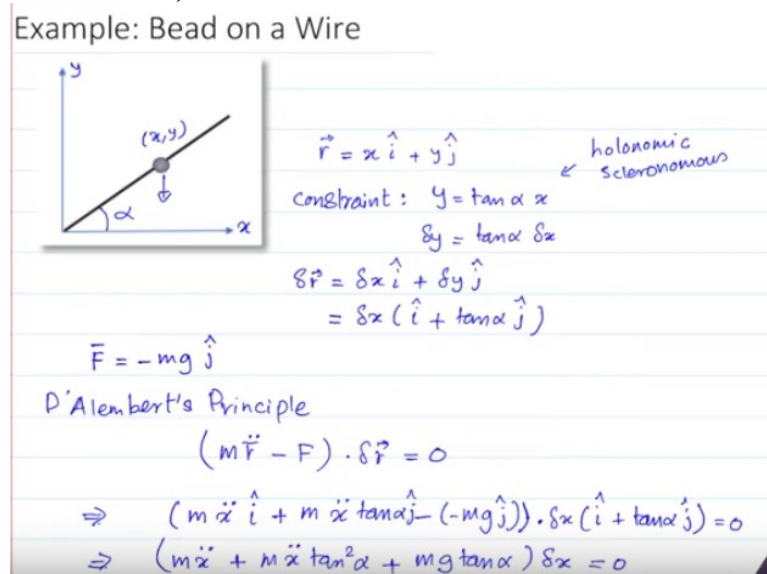 Example: Bead on a Wire
y
(x,y)
α
x
r⃗ = x î + y ĵ
holonomic
scleronomous
Constraint : y = tan α x
δy = tanα δx
δr⃗ = δx î + δy ĵ
= δx ( î + tanα ĵ )
F̄ = - mg ĵ
D'Alembert's Principle
(m r̈ - F) . δr⃗ = 0
⇒ (m ẍ î + m ẍ tanα ĵ - (-mg ĵ)) . δx ( î + tanα ĵ ) = 0
⇒ (mẍ + mẍ tan²α + mg tanα ) δx = 0